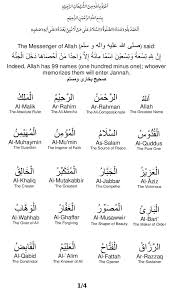 أعوذ بالله من الشيطان الرجيم
بسم الله الرحمن الرحيم
The Messenger of Allah (صلى الله عليه وآله و سلم) said:
إِنَّ لِلَّهِ تِسْعَةً وَتِسْعِينَ اسْمًا مِائَةً إِلَّا وَاحِدًا مَنْ أَحْصَاهَا دَخَلَ الْجَنَّةَ
Indeed, Allah has 99 names (one hundred minus one); whoever
memorizes them will enter Jannah.
صحيح بخاري ومسلم
الْمَلِكُ الرَّحِيمُ الرَّحْمَنُ
Al-Malik Ar-Rahim Ar-Rahman
The Absolute Ruler The All-Merciful The All-Compassionate
الْمُهَيْمِنُ الْمُؤْمِنُ السَّلَامُ الْقُدُّوسُ
Al-Muhaymin Al-Mumin As-Salam Al-Quddus
The Guardian The Inspirer of Faith The Source of Peace The Pure One
الْخَالِقُ الْمُتَكَبِّرُ الْجَبَّارُ الْعَزِيزُ
Al-Khaliq Al-Mutakabbir Al-Jabbar Al-Aziz
The Creator The Greatest The Compeller The Victorious
الْوَهَّابُ الْغَفَّارُ الْمُصَوِّرُ الْبَارِئُ
Al-Wahhab Al-Ghaffar Al-Musawwir Al-Bari
The Giver of All The Forgiving The Shaper of Beauty The Maker of Order
الْقَابِضُ الْعَلِيمُ الْفَتَّاحُ الرَّزَّاقُ
Al-Qabid Al-Alim Al-Fattah Ar-Razzaq
The Constrictor The Knower of All The Opener The Sustainer
1/4